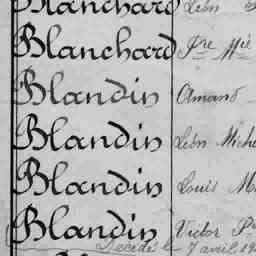 Blanchard Léon
Blanchard Pre Mie
Blandin Amand
Blandin Léon Miche
Blandin Louis M
Blandin Victor P
Décédé le 7 avril 19